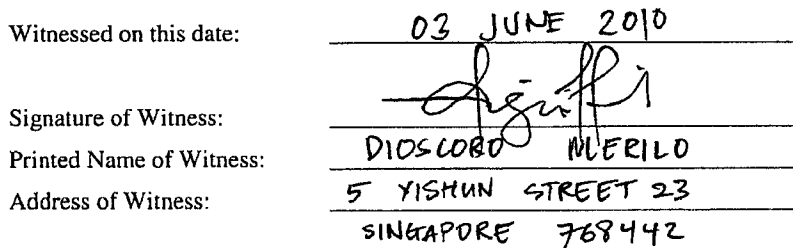 Witnessed on this date: 03 JUNE 2010
Signature of Witness:
Printed Name of Witness: DIOSCORO MERILO
Address of Witness: 5 YISHUN STREET 23
SINGAPORE 768442